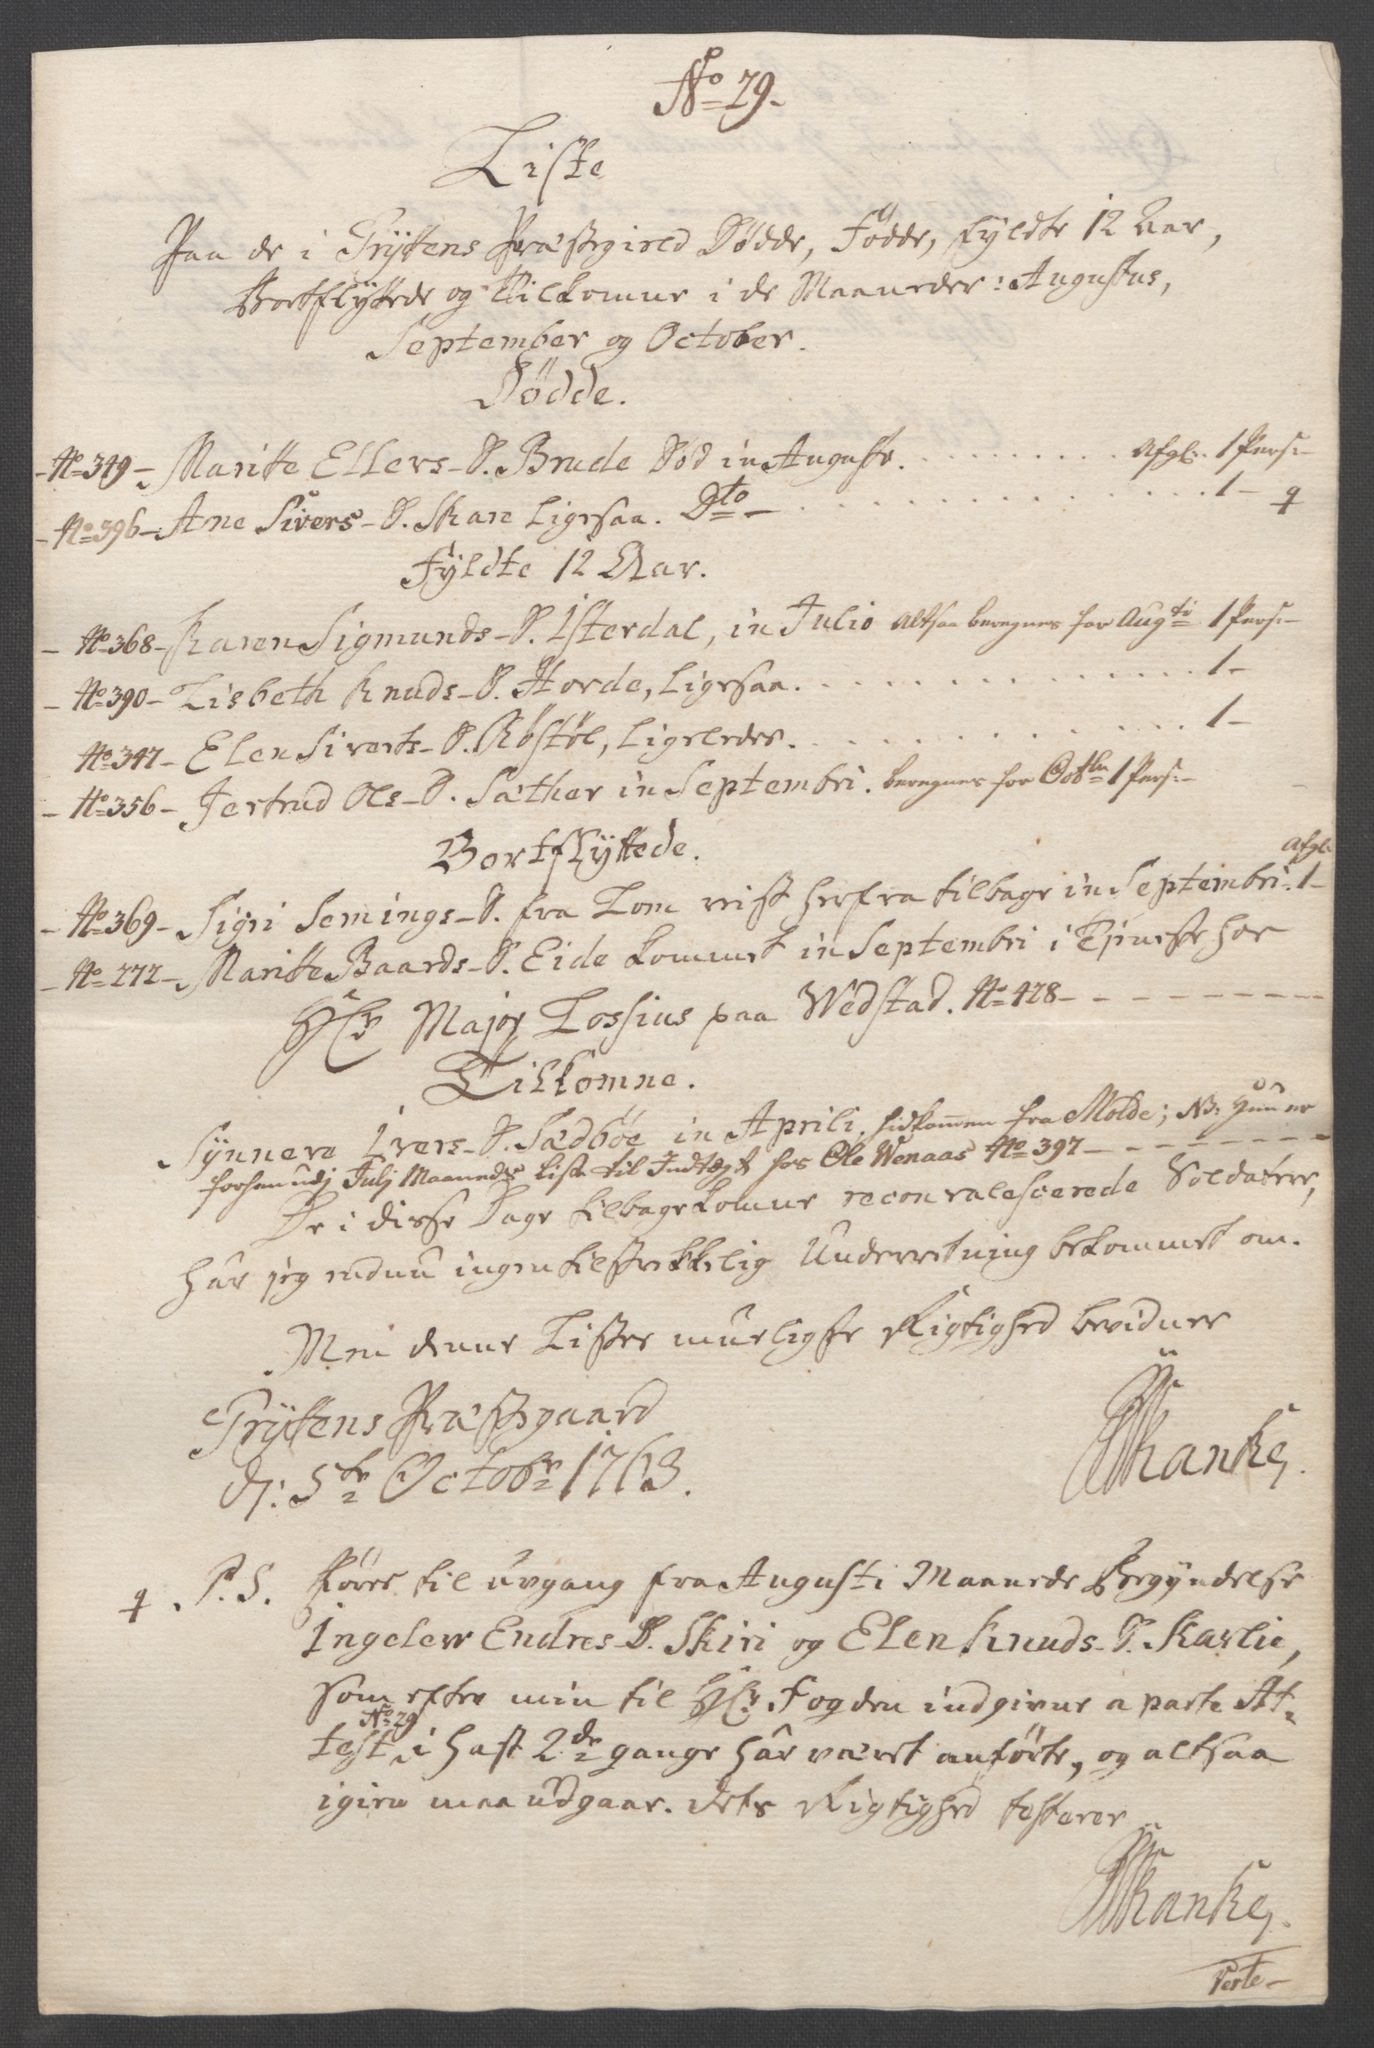 No 29.
Liste
Paa de i Gryttens Præstegield Dödde, Födde, fyldte 12 Aar,
Bortflyttede og Tilkomne i de Maaneder: Augustus,
September og October.
Dödde.
No 349 - Maritte Ellevs-D. Brude Död in Augusto. Afgl: 1 Pers:
No 396 - Ane Sivers-D. Skare Ligesaa. Dto 1
Fyldte 12 Aar.
No 368 - Karen Sigmunds-D. Isterdal, in Julio altsaa beregnes for Augti 1 Pers:
No 390 - Lisbeth Knuds-D. Horde, Ligesaa. 1
No 347 - Elen Siverts-D. Röstöl, Ligeledes. 1
No 356 - Jertrud Ols-D. Sæther in Septembri. beregnes for Octbr 1 Pers:
Bortflyttede. Afgl.
No 369 - Sigri Semings-D. fra Lom reist herfra tilbage in Septembri. 1
No 272 - Maritte Baards-D. Eide kommet in Septembri i Tieneste hos
Hr Major Lossius paa Wedstad. No 428
Tilkomne.
Synneve Ivers-D. Sædböe in Aprili, hidkommen fra Molde; NB: Hun er
forhen udj Julj Maaneds Liste til Indtægt hos Ole Wenaas No 397
De i disse Dage tilbagekomne reconvalescerede Soldater,
har jeg endnu ingen tilstrekkelig Underretning bekommet om.
Men denne Listes muligste Rigtighed bevidner
Gryttens Præstegaard
d: 5te Octobr 1763.
Hanke.
P. S. Förer til Avgang fra Augusti Maaneds Begyndelse
Ingelev Endres-D. Skiri og Elen Knuds-D. Karlie,
som efter min til Hr Fogden indgivne a parte At-
test No 29 i hast 2de gange har været anförte, og altsaa
igien maa udgaae. dets Rigtighed testerer
Hanke.
Verte